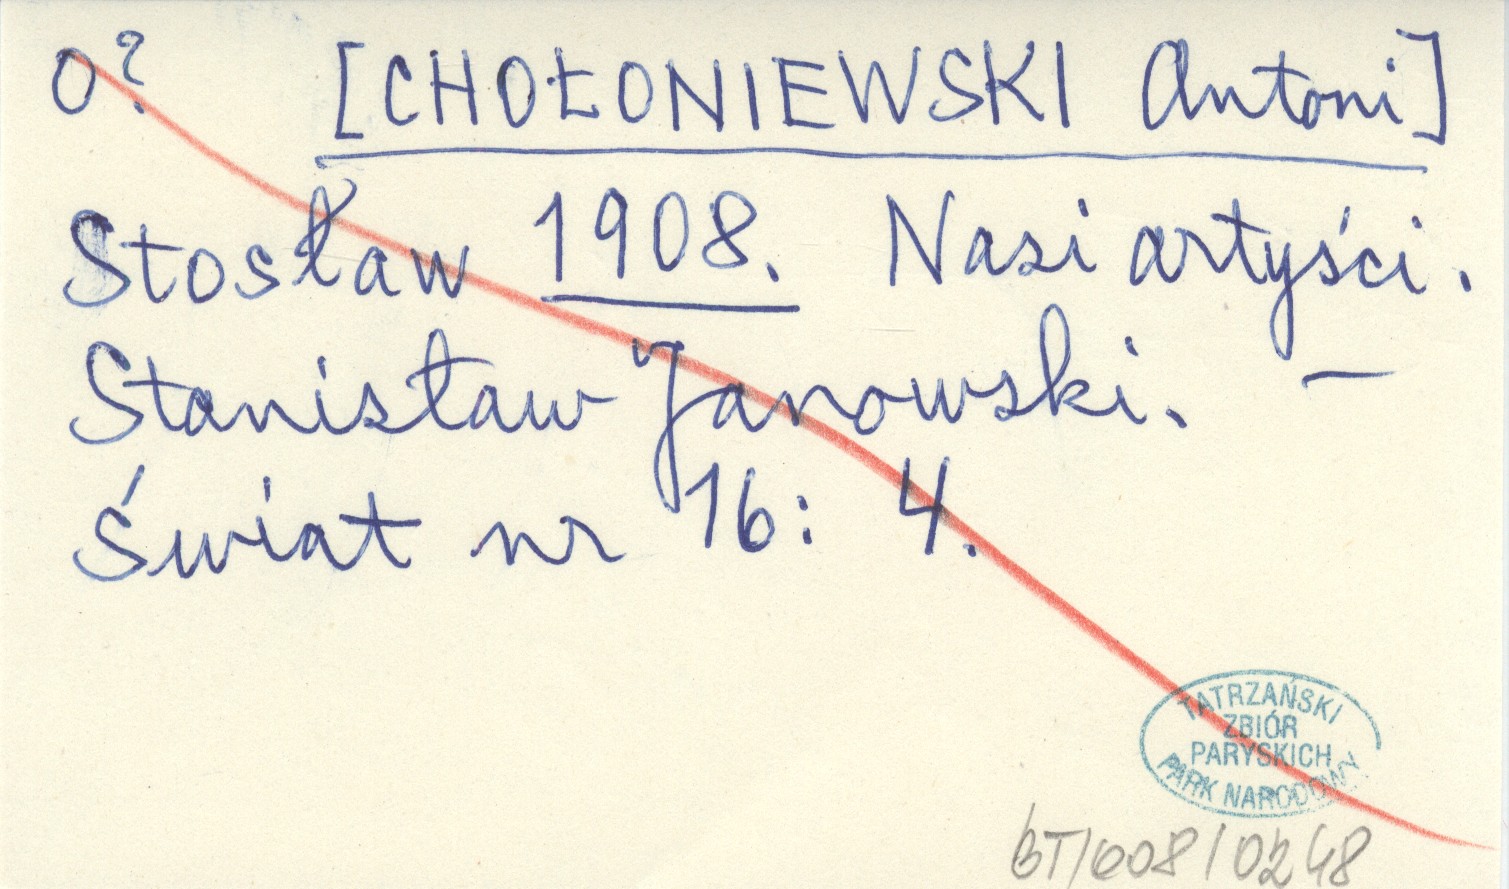 0? [CHOŁONIEWSKI Antoni]
Stosław 1908. Nasi artyści.
Stanisław Janowski. –
Świat nr 16: 4.
TATRZAŃSKI
ZBIÓR
PARYSKICH
PARK NARODOWY
BT/008/0248